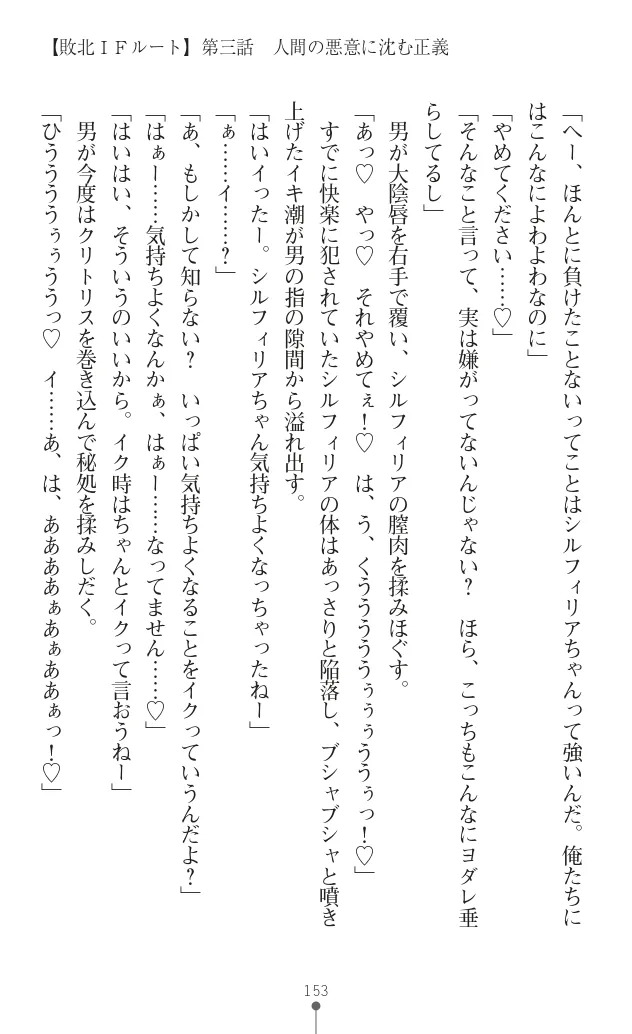 【敗北ＩＦルート】第三話　人間の悪意に沈む正義
「へー、ほんとに負けたことないってことはシルフィリアちゃんって強いんだ。俺たちに
はこんなによわよわなのに」
「やめてください……♡」
「そんなこと言って、実は嫌がってないんじゃない？　ほら、こっちもこんなにヨダレ垂
らしてるし」
　男が大陰唇を右手で覆い、シルフィリアの膣肉を揉みほぐす。
「あっ♡　やっ♡　それやめてぇ！♡　は、う、くうううううぅぅぅううぅっ！♡」
　すでに快楽に犯されていたシルフィリアの体はあっさりと陥落し、ブシャブシャと噴き
上げたイキ潮が男の指の隙間から溢れ出す。
「はいイったー。シルフィリアちゃん気持ちよくなっちゃったねー」
「ぁ……イ……？」
「あ、もしかして知らない？　いっぱい気持ちよくなることをイクっていうんだよ？」
「はぁー……気持ちよくなんかぁ、はぁー……なってません……♡」
「はいはい、そういうのいいから。イク時はちゃんとイクって言おうねー」
　男が今度はクリトリスを巻き込んで秘処を揉みしだく。
「ひううううぅぅううっ♡　イ……あ、は、ああああぁあぁああぁっ！♡」
153